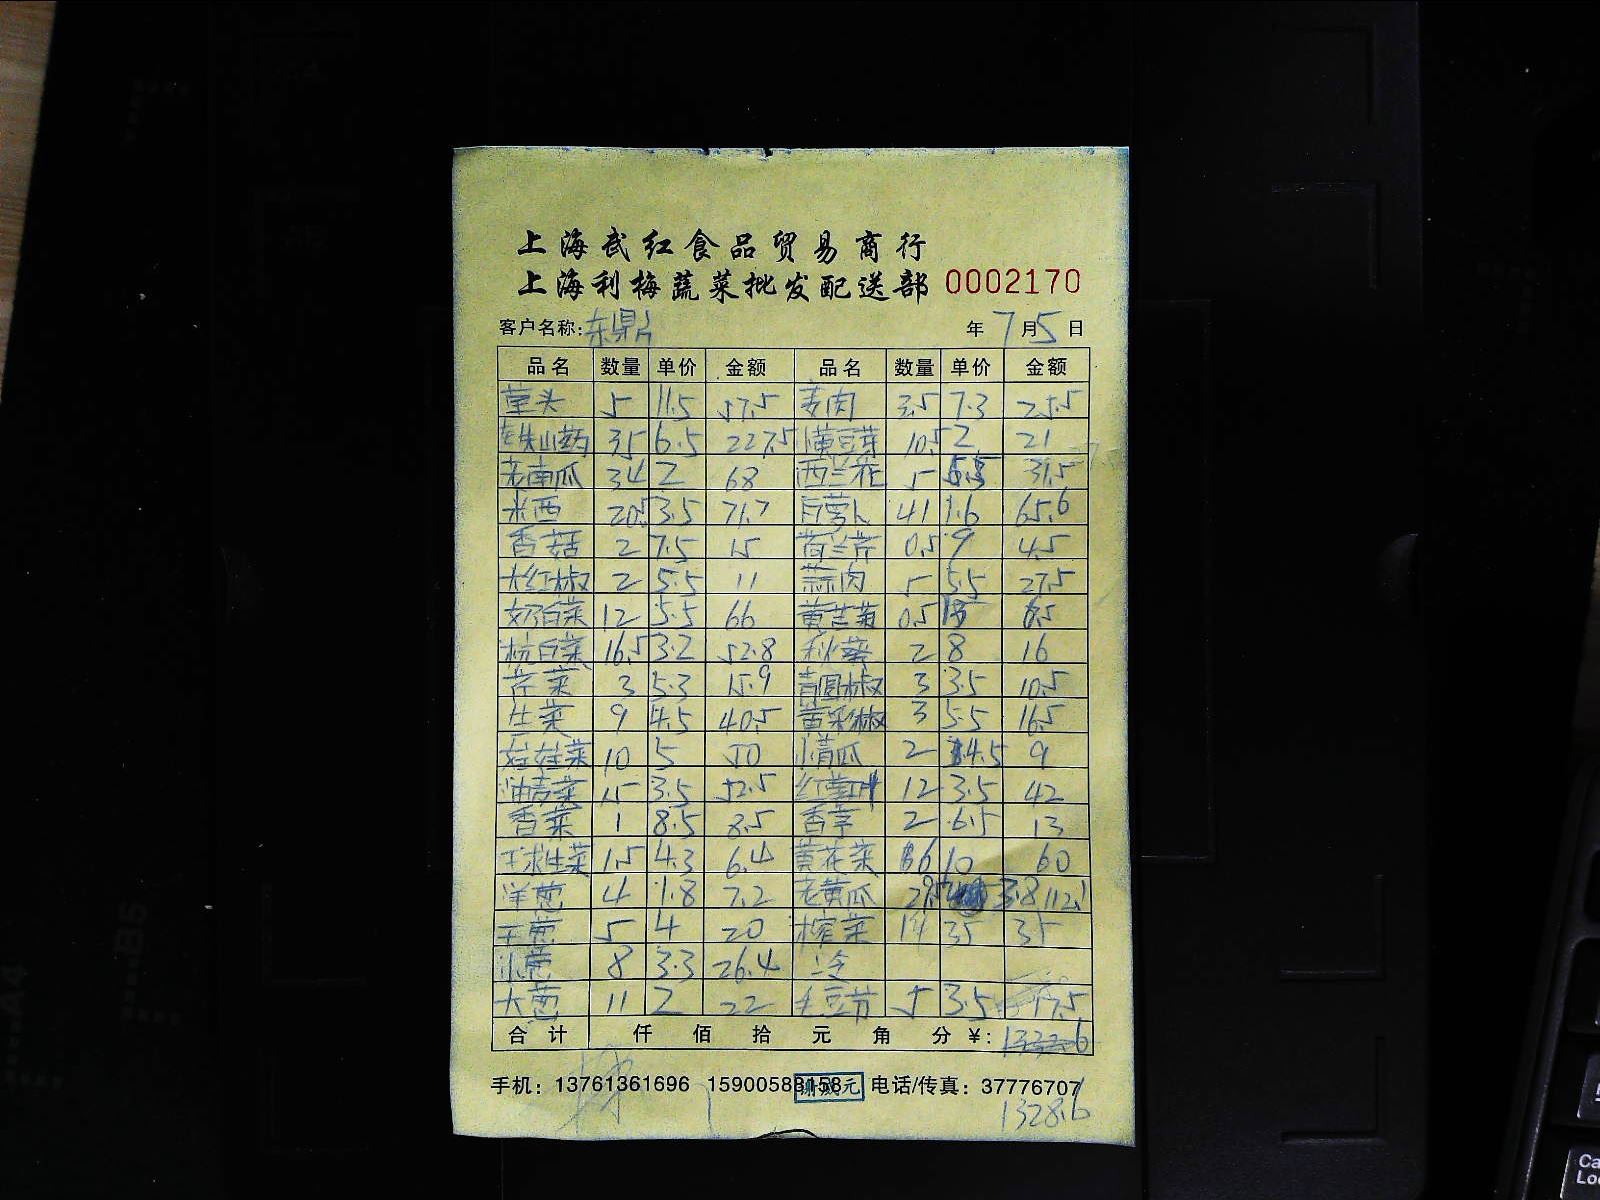 上海武红食品贸易商行
上海利梅蔬菜批发配送部 0002170
客户名称: 东鼎 年 7 月 5 日
品名 数量 单价 金额 品名 数量 单价 金额
草头 5 11.5 57.5 麦肉 3.5 7.3 25.5
铁山药 35 6.5 227.5 黄豆芽 10.5 2 21
老南瓜 34 2 68 西兰花 5 31.5
米西 20.5 3.5 71.7 白萝卜 41 1.6 65.6
香菇 2 7.5 15 荷兰芹 0.5 9 4.5
大红椒 2 5.5 11 蒜肉 5 5.5 27.5
奶白菜 12 5.5 66 黄苦菊 0.5 6.5
杭白菜 16.5 3.2 52.8 秋葵 2 8 16
芹菜 3 5.3 15.9 青圆椒 3 3.5 10.5
生菜 9 4.5 40.5 黄彩椒 3 5.5 16.5
娃娃菜 10 5 50 小青瓜 2 4.5 9
油麦菜 15 3.5 52.5 红薯叶 12 3.5 42
香菜 1 8.5 8.5 香芋 2 6.5 13
球生菜 1.5 4.3 6.4 黄花菜 6 10 60
洋葱 4 1.8 7.2 老黄瓜 29.5 3.8 112.1
干葱 5 4 20 榨菜 1件 35 35
小葱 8 3.3 26.4
大葱 11 2 22 毛豆节 5 3.5 17.5
合计 仟 佰 拾 元 角 分 ¥:
手机: 13761361696 15900583158 电话/传真: 37776707
1328.6